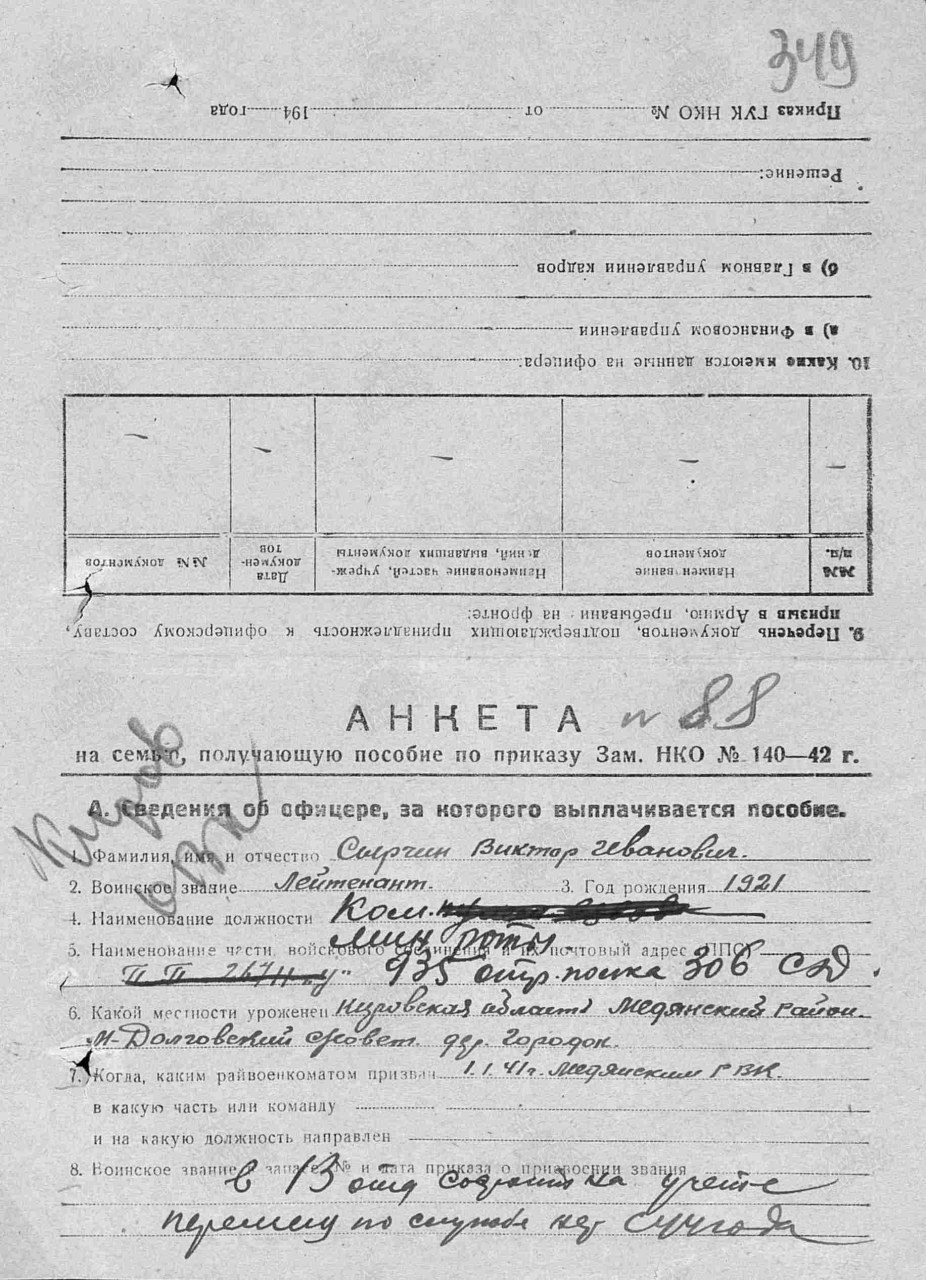 349
Приказ ГУК НКО № от 194 года
Решение:
б) в Главном управлении кадров
а) в Финансовом управлении
10. Какие имеются данные на офицера:
№№ п/п. Наименование документов Наименование частей, учреждений, выдавших документы Дата документов №№ документов
— — — — —
9. Перечень документов, подтверждающих принадлежность к офицерскому составу,
призыв в Армию, пребывание на фронте:
АНКЕТА № 88
на семью, получающую пособие по приказу Зам. НКО № 140—42 г.
Киров
ОВК
А. Сведения об офицере, за которого выплачивается пособие.
1. Фамилия, имя и отчество Сырчин Виктор Иванович.
2. Воинское звание Лейтенант. 3. Год рождения 1921
4. Наименование должности Ком.
мин роты.
5. Наименование части, войскового соединения и их почтовый адрес ППС
935 стр. полка 306 СД.
6. Какой местности уроженец Кировская область Медянский район.
М-Долговский совет. дер. Городок.
7. Когда, каким райвоенкоматом призван 1.1.41г. Медянским РВК.
в какую часть или команду
и на какую должность направлен
8. Воинское звание в запасе, № и дата приказа о присвоении звания
в 13 отд состоит на учете
перемен по службе нет с 44 года